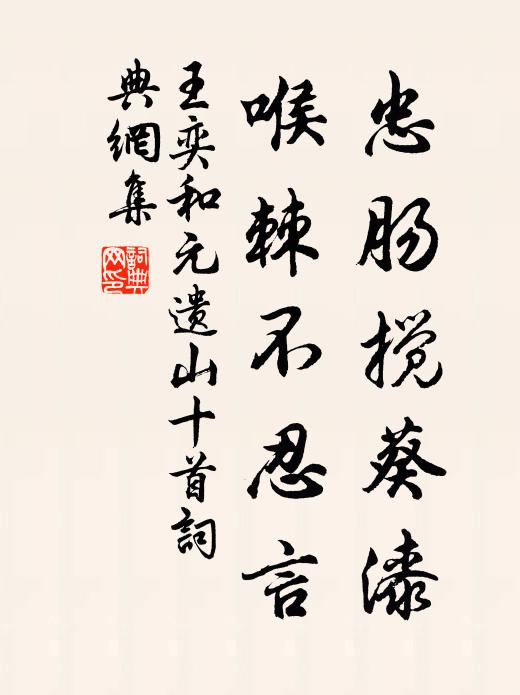 忠肠搅葵漆
喉棘不忍言
王奕和元遗山十首詞
典網集
詞典網印